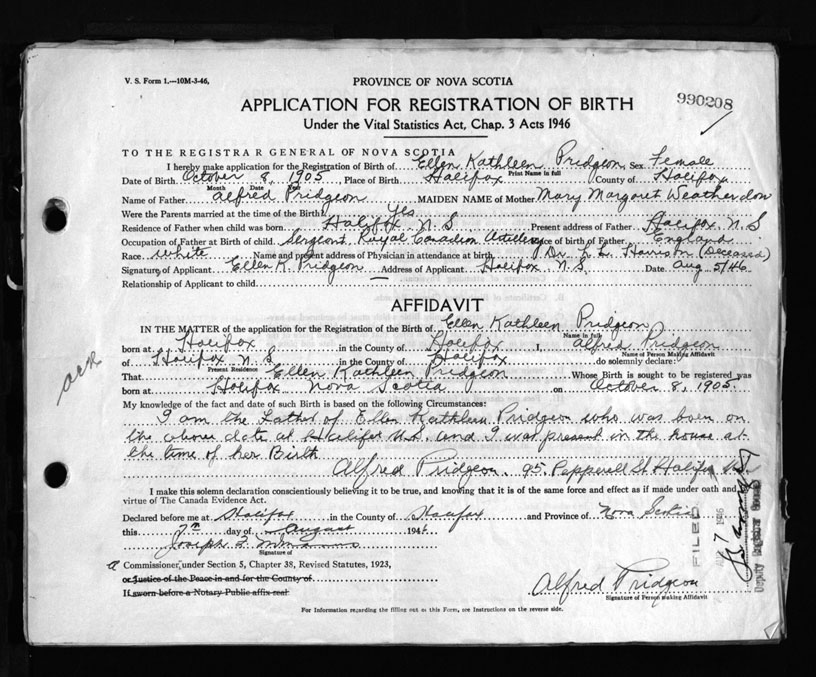 V. S. Form 1.---10M-3-46.
PROVINCE OF NOVA SCOTIA
990208
APPLICATION FOR REGISTRATION OF BIRTH
Under the Vital Statistics Act, Chap. 3 Acts 1946
TO THE REGISTRAR GENERAL OF NOVA SCOTIA
I hereby make application for the Registration of Birth of Ellen Kathleen Pridgeon, Sex Female
Print Name in full
Date of Birth October 8, 1905 Place of Birth Halifax County of Halifax
Month Date
Name of Father Alfred Pridgeon MAIDEN NAME of Mother Mary Margaret
Were the Parents married at the time of the Birth? Yes
Residence of Father when child was born Halifax N.S Present address of Father Halifax N.S
Occupation of Father at Birth of child. Sergeant Royal Canadian Artillery Place of birth of Father England
Race white Name and present address of Physician in attendance at birth Dr. Harrison (Deceased)
Signature of Applicant Ellen K. Pridgeon Address of Applicant Halifax N.S. Date Aug 5/46
Relationship of Applicant to child —
AFFIDAVIT
IN THE MATTER of the application for the Registration of the Birth of Ellen Kathleen Pridgeon
Name in full
born at Halifax in the County of Halifax I, Alfred Pridgeon
Name of Person Making Affidavit
of Halifax N S in the County of Halifax do solemnly declare:
Present Residence
That Ellen Kathleen Pridgeon Whose Birth is sought to be registered was
born at Halifax Nova Scotia on October 8, 1905.
ack
My knowledge of the fact and date of such Birth is based on the following Circumstances:
I am the Father of Ellen Kathleen Pridgeon who was born on
the above date at Halifax N.S. and I was present in the house at
the time of her Birth
Alfred Pridgeon 95 Pepperell St. Halifax N.S.
I make this solemn declaration conscientiously believing it to be true, and knowing that it is of the same force and effect as if made under oath and
virtue of The Canada Evidence Act.
Declared before me at Halifax in the County of Halifax and Province of Nova Scotia
this 7th day of August 1946
Joseph
Signature of
a Commissioner, under Section 5, Chapter 38, Revised Statutes, 1923,
or Justice of the Peace in and for the County of
If sworn before a Notary Public affix seal
Alfred Pridgeon
Signature of Person making Affidavit
FILED 7 1946
Deputy Registrar General
For Information regarding the filling out of this Form, see Instructions on the reverse side.